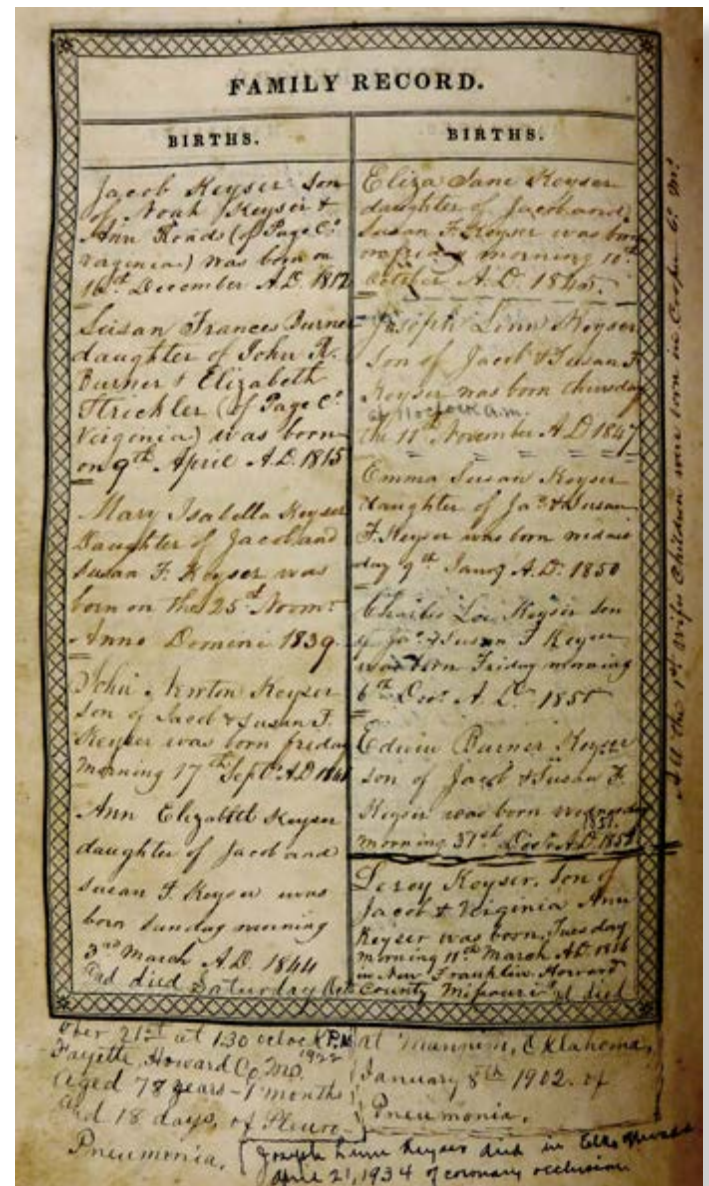 FAMILY RECORD.
BIRTHS.
Jacob Keyser son
of Noah Keyser &
Ann Roads (of Page Co.
Virginia) was born on
16th December A.D. 1812
Susan Frances Burner
daughter of John R.
Burner & Elizabeth
Strickler (of Page Co.
Virginia) was born
on 9th April A.D. 1815
Mary Isabella Keyser
Daughter of Jacob and
Susan F. Keyser was
born on the 25th
Anno Domini 1839.
John Newton Keyser
son of Jacob & Susan F.
Keyser was born friday
morning 17th Sept. A.D.
Ann Elizabeth Keyser
daughter of Jacob and
Susan F. Keyser was
born Sunday morning
3rd March A.D. 1844
and died Saturday Oct
ober 21st at 1:30 oclock P.M.
1922
Fayette, Howard Co. Mo.
aged 78 years - 7 months
and 18 days, of Pleuro-
Pneumonia.
BIRTHS.
Eliza Jane Keyser
daughter of Jacob and
Susan F. Keyser was born
on friday morning 10th
October A.D. 1845.
Joseph Linn Keyser
Son of Jacob & Susan F.
Keyser was born thursday
at 11 oclock a.m.
the 11th November A D 1847
Emma Susan Keyser
daughter of Ja. & Susan
F. Keyser was born
day 9th A.D. 1850
Charles Keyser son
of Ja. & Susan F Keyser
was born Friday morning
6th A. D.
Edwin Burner Keyser
son of Jacob & Susan F.
Keyser was born
morning 31st A.D.
Leroy Keyser, Son of
Jacob & Virginia Ann
Keyser was born, Tuesday
morning 11th March A.D.
in New Franklin, Howard
County Missouri and died
at Oklahoma,
January 8th 1902. of
Pneumonia.
Joseph Linn Keyser died in Elko Nevada
April 21, 1934 of coronary occlusion
All the 1st Wifes Children were born in Cooper Co. Mo.